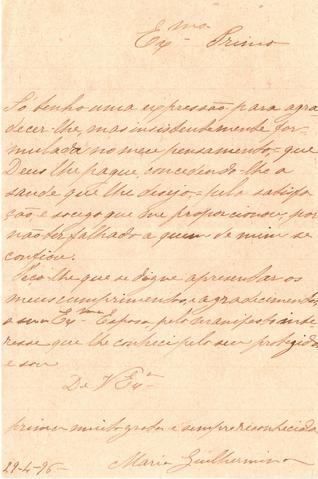 Exmo Primo
Só tenho uma expressão para agra-
decer-lhe, mas insistentemente for-
mulada no meu pensamento,- que
Deus lhe pague, concedendo-lhe a
saude que lhe desejo,- pela satisfa-
ção, e socego que me proporcionou, por
não ter falhado a quem de mim se
confiou.
Peço-lhe que se digne apresentar os
meus cumprimentos, e agradecimentos,
a sua Exma Esposa, pelo manifesto inte-
resse que lhe conheci pelo seu protegido,
e sou
De V Exa
prima muito grata e sempre reconhecida
29-4-96- Maria Guilhermina